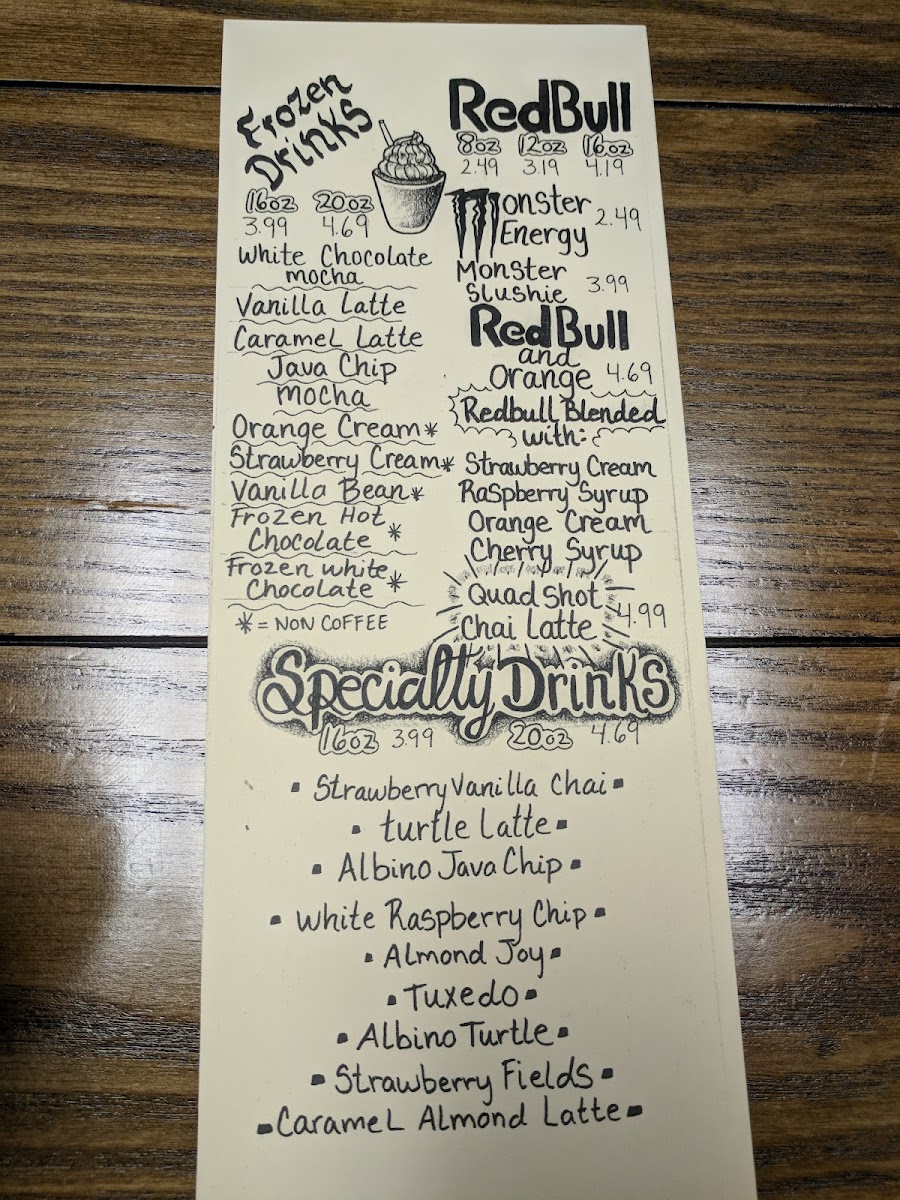 Frozen
Drinks
16oz 20oz
3.99 4.69
White Chocolate
mocha
Vanilla Latte
Caramel Latte
Java Chip
mocha
Orange Cream*
Strawberry Cream*
Vanilla Bean*
Frozen Hot
Chocolate *
Frozen white
Chocolate *
* = NON COFFEE
RedBull
8oz 12oz 16oz
2.49 3.19 4.19
Monster
Energy 2.49
Monster
Slushie 3.99
RedBull
and
Orange 4.69
Redbull Blended
with:
Strawberry Cream
Raspberry Syrup
Orange Cream
Cherry Syrup
Quad Shot
Chai Latte 4.99
Specialty Drinks
16oz 3.99 20oz 4.69
▪ Strawberry Vanilla Chai ▪
▪ turtle Latte ▪
▪ Albino Java Chip ▪
▪ White Raspberry Chip ▪
▪ Almond Joy ▪
▪ Tuxedo ▪
▪ Albino Turtle ▪
▪ Strawberry Fields ▪
▪ Caramel Almond Latte ▪